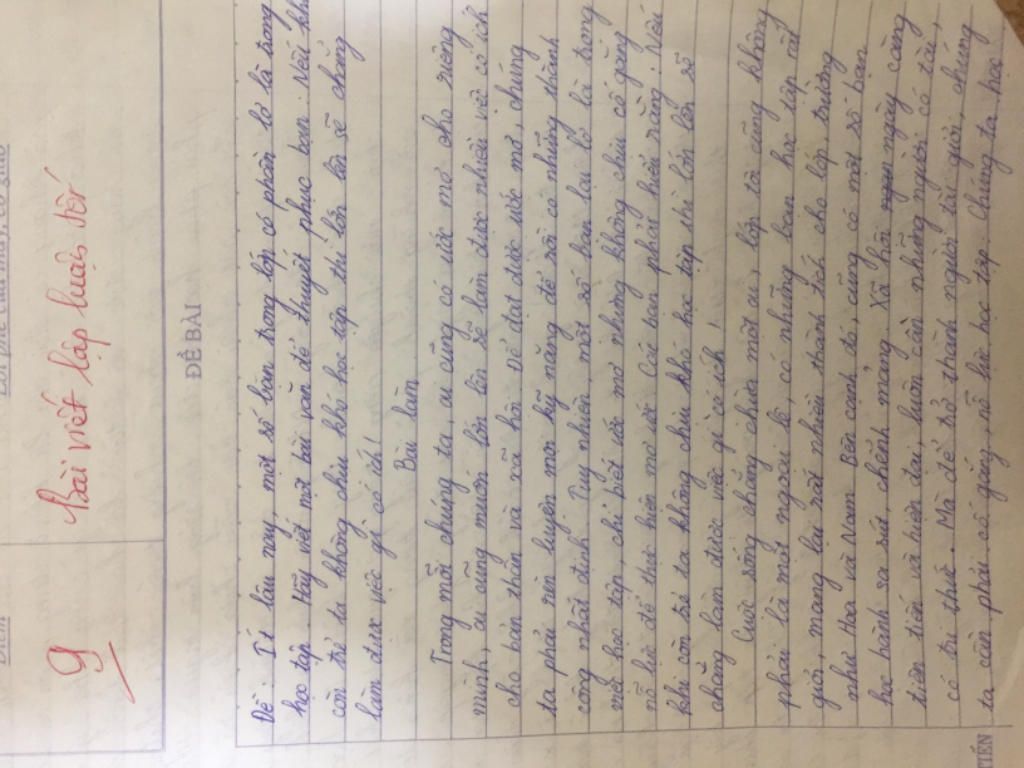 Điểm
Lời phê của thầy, cô giáo
9
Bài viết lập luận tốt
ĐỀ BÀI
Đề: Ít lâu nay, một số bạn trong lớp có phần lơ là trong
học tập. Hãy viết một bài văn để thuyết phục bạn: Nếu khi
còn trẻ ta không chịu khó học tập thì lớn lên sẽ chẳng
làm được việc gì có ích!
Bài làm
Trong mỗi chúng ta, ai cũng có ước mơ cho riêng
mình, ai cũng muốn lớn lên sẽ làm được nhiều việc có ích
cho bản thân và xã hội. Để đạt được ước mơ, chúng
ta phải rèn luyện mọi kỹ năng để rồi có những thành
công nhất định. Tuy nhiên, một số bạn lại lơ là trong
việc học tập, chỉ biết ước mơ nhưng không chịu cố gắng
nỗ lực để thực hiện mơ ước. Các bạn phải hiểu rằng: Nếu
khi còn trẻ ta không chịu khó học tập thì lớn lên sẽ
chẳng làm được việc gì có ích!
Cuộc sống chẳng chừa một ai, lớp tôi cũng không
phải là một ngoại lệ, có những bạn học tập rất
giỏi, mang lại rất nhiều thành tích cho lớp, trường
như Hoa và Nam. Bên cạnh đó, cũng có một số bạn
học hành sa sút, chểnh mảng. Xã hội ngày càng
tiên tiến và hiện đại, luôn cần những người có tài,
có tri thức. Mà để trở thành người tài giỏi, chúng
ta cần phải cố gắng, nỗ lực học tập. Chúng ta học
TIẾN